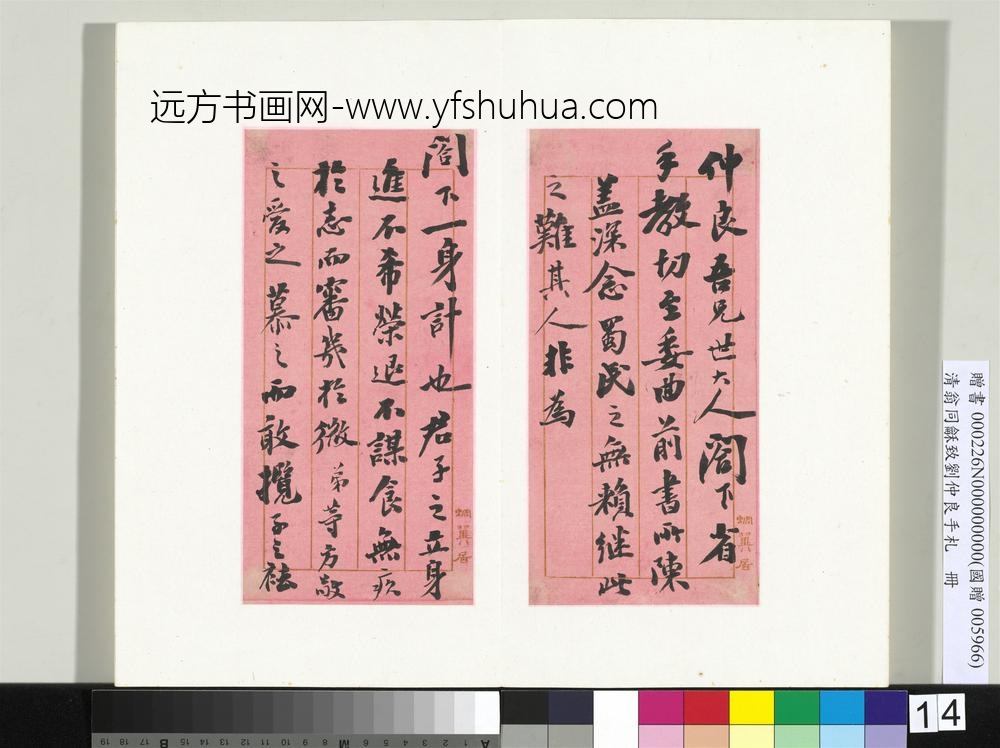 远方书画网-www.yfshuhua.com
仲良吾兄世大人閣下省
手教切至委曲前書所陳
蓋深念蜀民之無賴繼此
之難其人非為
蜩翼居
閣下一身計也君子之立身
進不希榮退不謀食無疚
於志而審幾於微弟等方敬
之愛之慕之而敢攬子之袪
蜩翼居
贈書 000226N000000000(國贈 005966)
清翁同龢致劉仲良手札 冊
14